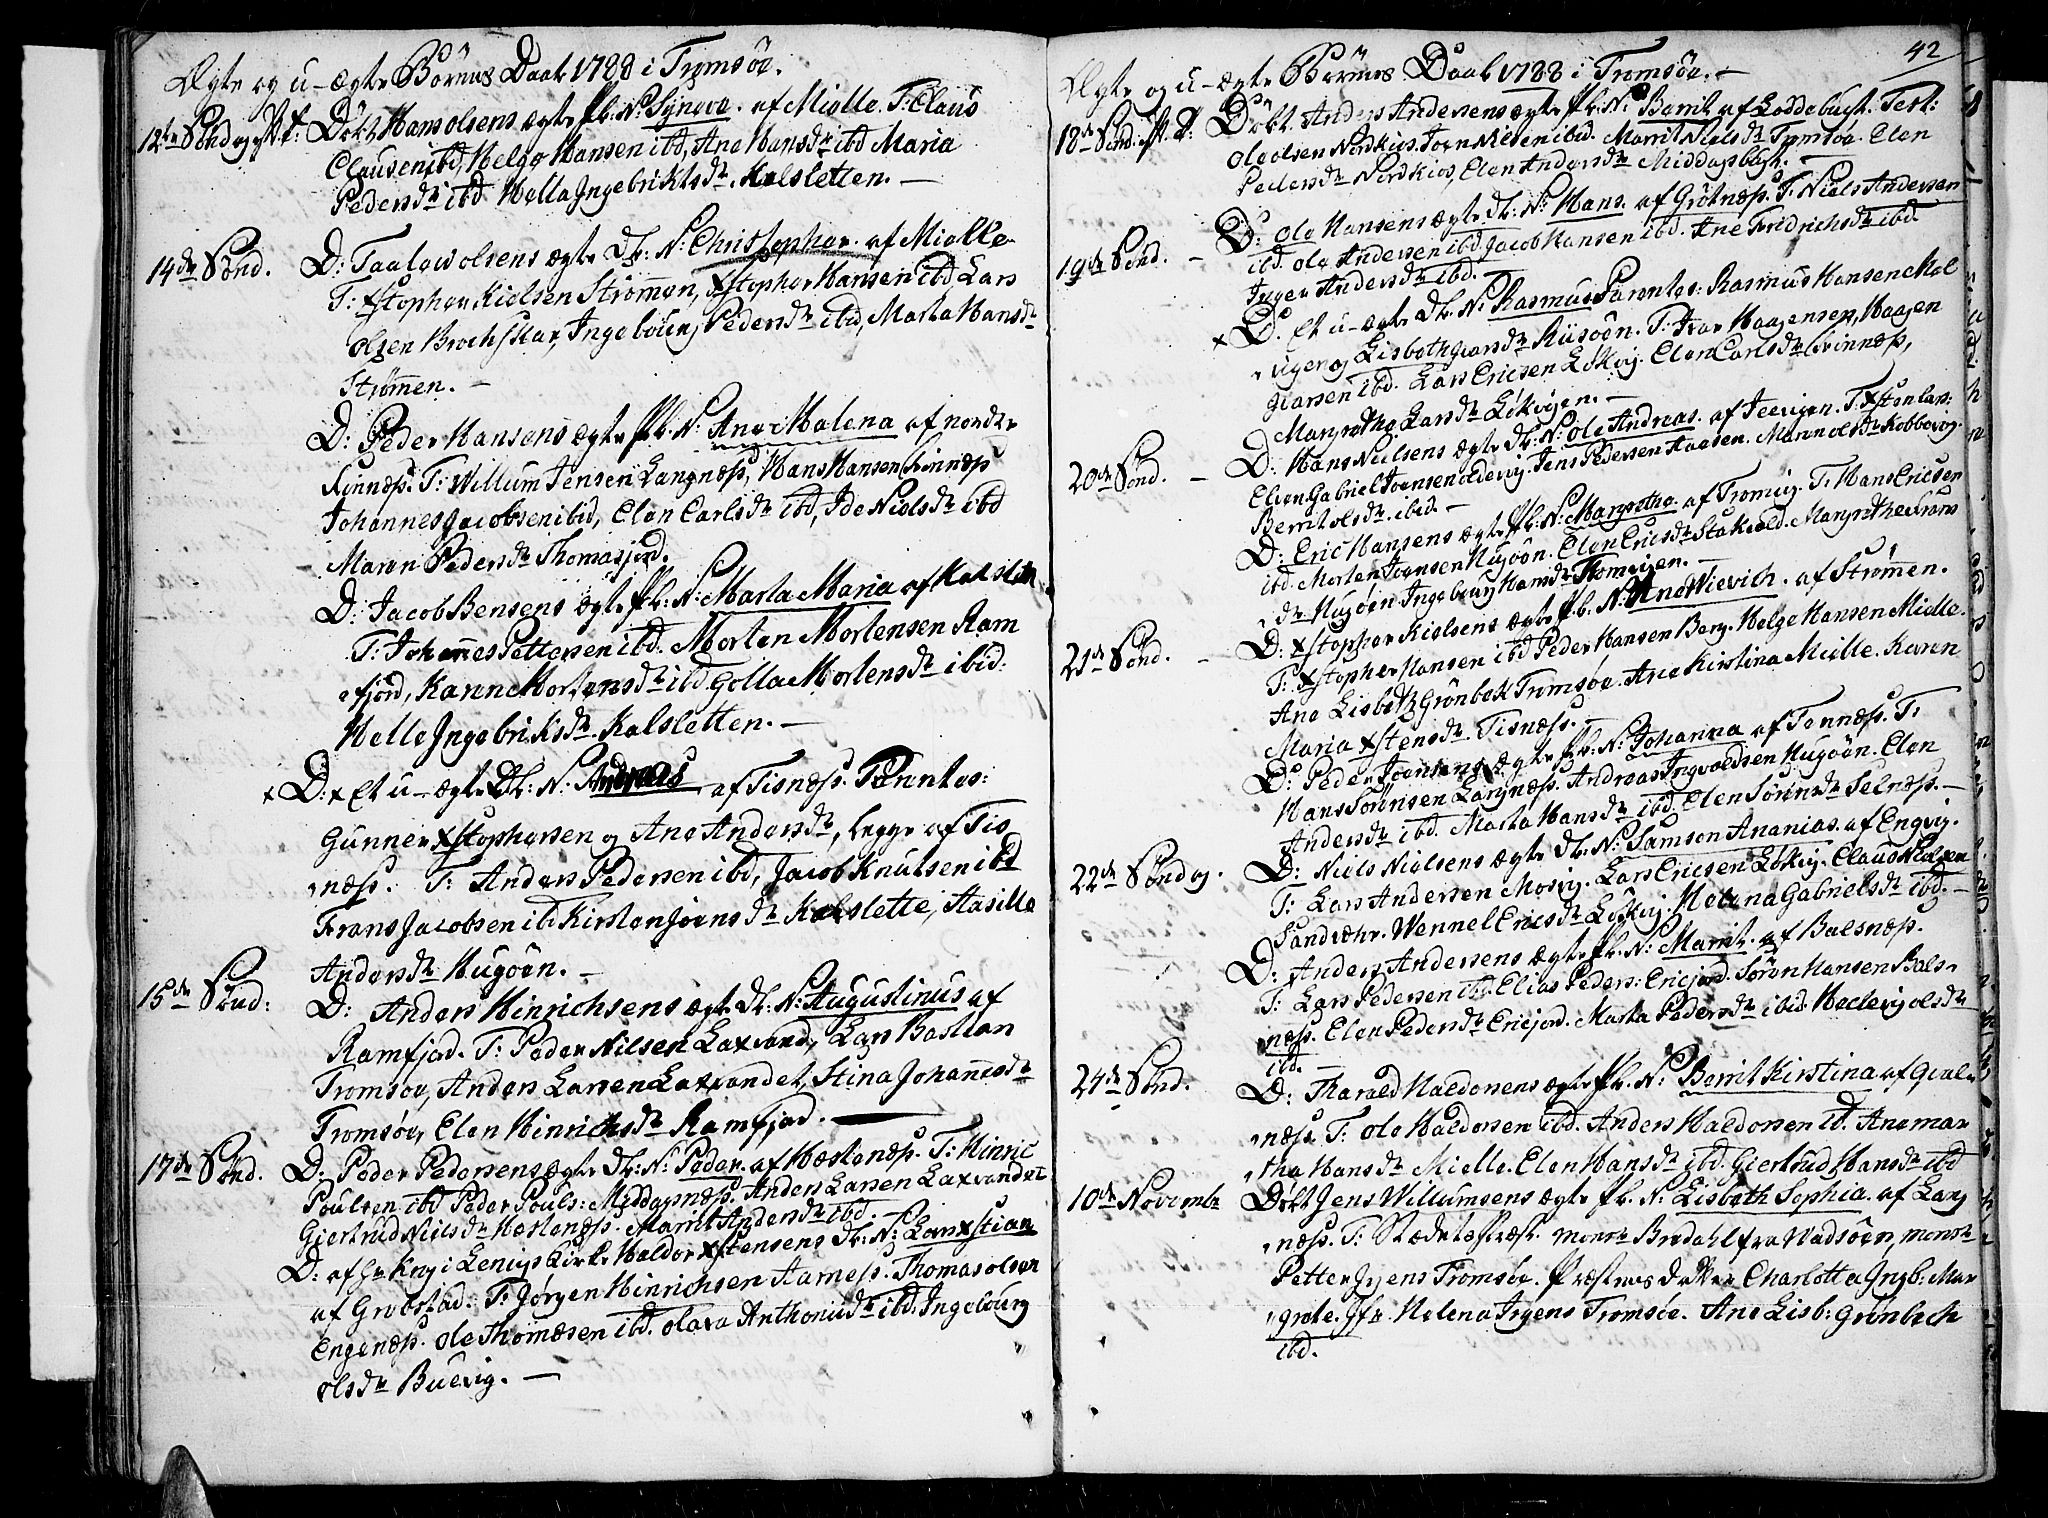 Ægte og u-ægte Børnes Daab 1788 i Tromsøe.
12te Søndag p. T: Døbt Hans Olsens ægte Pb: N: Synøve. af Mielle. T: Claus
Clausen ibd, Helge Hansen ibd, Ane Hansdr ibd Maria
Pedersdr ibd Hella Ingebriktsdr. Kalsletten. —
14de Sønd. D: Taalew Olsens ægte Db: N: Christopher. af Mielle
T: Xstopher Kielsen Strømmen, Xstopher Hansen ibd, Lars
Olsen Brochskar, Ingebour Pedersdr ibid, Marta Hansdr
Strømmen. —
D: Peder Hansens ægte Pb: N: Ane Malena af nordre
Finnæss. T: Willum Jensen Langnæss, Hans Hansen Finnæss
Johannes Jacobsen ibid, Elen Carlsdr ibd, Ide Nielsdr ibd
Maren Pedersdr Thomasjord.
D: Jacob Bensens ægte Pb: N: Marta Maria af Kalsletten
T: Johannes Pettersen ibd. Morten Mortensen Ram
fjord, Kanne Mortensdr ibd Golla Mortensdr ibid:
Helle Ingebriktsdr. Kalsletten. —
x D: x Et u-ægte Db: N: Andreas af Tisnæss. Parentes:
Gunner Xstophersen og Ane Andersdr, begge af Tis
næss. T: Anders Pedersen ibd, Jacob Knutsen ibd
Frans Jacobsen ibd Kirsten Joensdr Kalslette, Aasille
Andersdr Hugøen. —
15de Sønd: D: Anders Hinrichsens ægte Db: N: Augustinus af
Ramfjord. T: Peder Nilsen Laxvand, Lars Bastian
Tromsøe, Anders Larsen Laxvandet, Stina Johannesdr
Tromsøe, Elen Hinrichsdr Ramfjord. —
17de Sønd. D: Peder Pedersens ægte Db: N: Peder. af Hestenæss. T: Hinric
Poulsen ibd Peder Pouls: Middagsnæss. Anders Larsen Laxvandet
Giertrud Nielsdr Hestenæss. Marrit Andersdr ibd. —
D: af Hr Krog i Lenvigs Kirke Haldor Xstensens Db: N: Lars Xstian
af Grøbstad. T: Jørgen Hinrichsen Aarness. Thomas Olsen
Engenæss. Ole Thomæsen ibd. Olava Anthonisdr ibd. Ingebourg
Olsdr Buevig. —
42
Ægte og u-ægte Børnes Daab 1788 i Tromsøe. —
18de Sønd. p. T: Døbt. Anders Andersens ægte Pb: N: Berrit af Loddebugt. Test:
Ole Olsen Nordkios. Joen Nielsen ibid. Marrit Nielsdr Tromsøe. Elen
Pedersdr Nordkios, Elen Andersdr Middagsbugt. —
19de Sønd. — D: Ole Hansens ægte Db: N: Hans. af Grøtnæss. T: Niels Andersen
ibd. Ole Andersen ibd. Jacob Hansen ibd. Ane Fridrichsdr ibd
Inger Andersdr ibd. —
x D: Et u-ægte Db: N: Rasmus Parentes: Rasmus Hansen Kal
vigen og Lisbeth Iversdr Riisøen. T: Iver Haagensen, Haagen
Iversen ibd. Lars Ericsen Løkvig. Elen Carlsdr Finnæss,
Margrethe Larsdr Løkvigen. —
20de Sønd. — D: Hans Nielsens ægte Db: N: Ole Andreas. af Jeevigen. T: Xsten Lars:
Elven. Gabriel Joensen Oldervig. Jens Pedersen Haasen. Maren Olsdr Kobbevog.
Berrit Olsdr. ibid. —
D: Eric Hansens ægte Pb: N: Margretha. af Tromvig. T: Hans Ericsen
ibd. Morten Joensen Hugøen. Elen Ericsdr Stakvold. Margrethe Frans
dr Hugøen Ingebour Hansdr Tromvigen. —
21de Sønd. — D: Xstopher Kielsens ægte Pb. N: Ane Wievich. af Strømmen.
T: Xstopher Hansen ibid Peder Hansen Berg. Helge Hansen Mielle.
Ane Lisbeth Grønbek Tromsøe. Ane Kirstina Mielle. Karen
Maria Xstensdr. Tisnæss. —
D: Peder Joensens ægte Pb. N: Johanna af Tønnæss. T:
Hans Sørensen Langnæss. Andreas Ingvaldsen Hugøen. Elen
Andersdr ibd. Marta Hansdr ibd. Elen Sørensdr Selnæss. —
22de Søndag. D: Niels Nielsens ægte Db: N: Samson Ananias. af Engvig.
T: Lars Andersen Mosvig. Lars Ericsen Løkvig. Claus Nielsen
Sandvæhr. Wennel Ericsdr Løkvig. Helena Gabrielsdr ibd. —
D: Anders Andersens ægte Pb. N: Marrit. af Balsnæss.
T: Lars Pedersen ibd. Elias Peders: Ericjord. Søren Hansen Bals
næss. Elen Pedersdr Ericjord. Marta Pedersdr ibid Hedevig Olsdr
ibd. —
24de Sønd. D: Tharald Haldorsens ægte Pb. N: Berrit Kirstina af Qval
næss T: Ole Haldorsen ibd. Anders Haldorsen ib. Ane Mar
tha Hansdr Mielle. Elen Hansdr ibd. Giertrud Hansdr ibd
10de Novembr Døbt Jens Willumsens ægte Pb. N: Lisbeth Sophia. af Lang
næss. T: Stædets Præst. Monsr Bredahl fra Wadsøen, Monsr
Petter Irgens Tromsøe. Præstens Datter Charlotta Ingb: Mar
grete. Jfr. Helena Irgens Tromsøe. Ane Lisb: Grønbech
ibd.